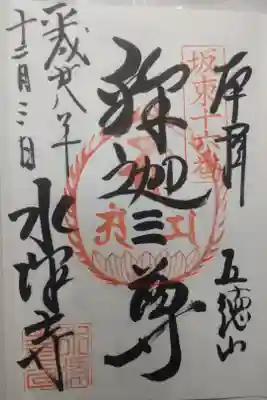 奉拝
坂東十六番
五徳山
釋迦三尊
水澤寺
平成廿八年
十二月三日